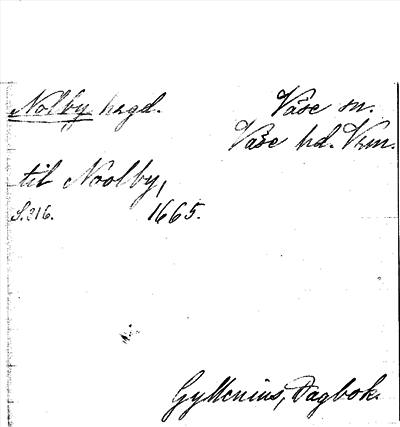 Nolby hrgd. Väse sn.
Väse hd. Vrm.
til Noolby,
S. 216. 1665.
Gyllenius, Dagbok.